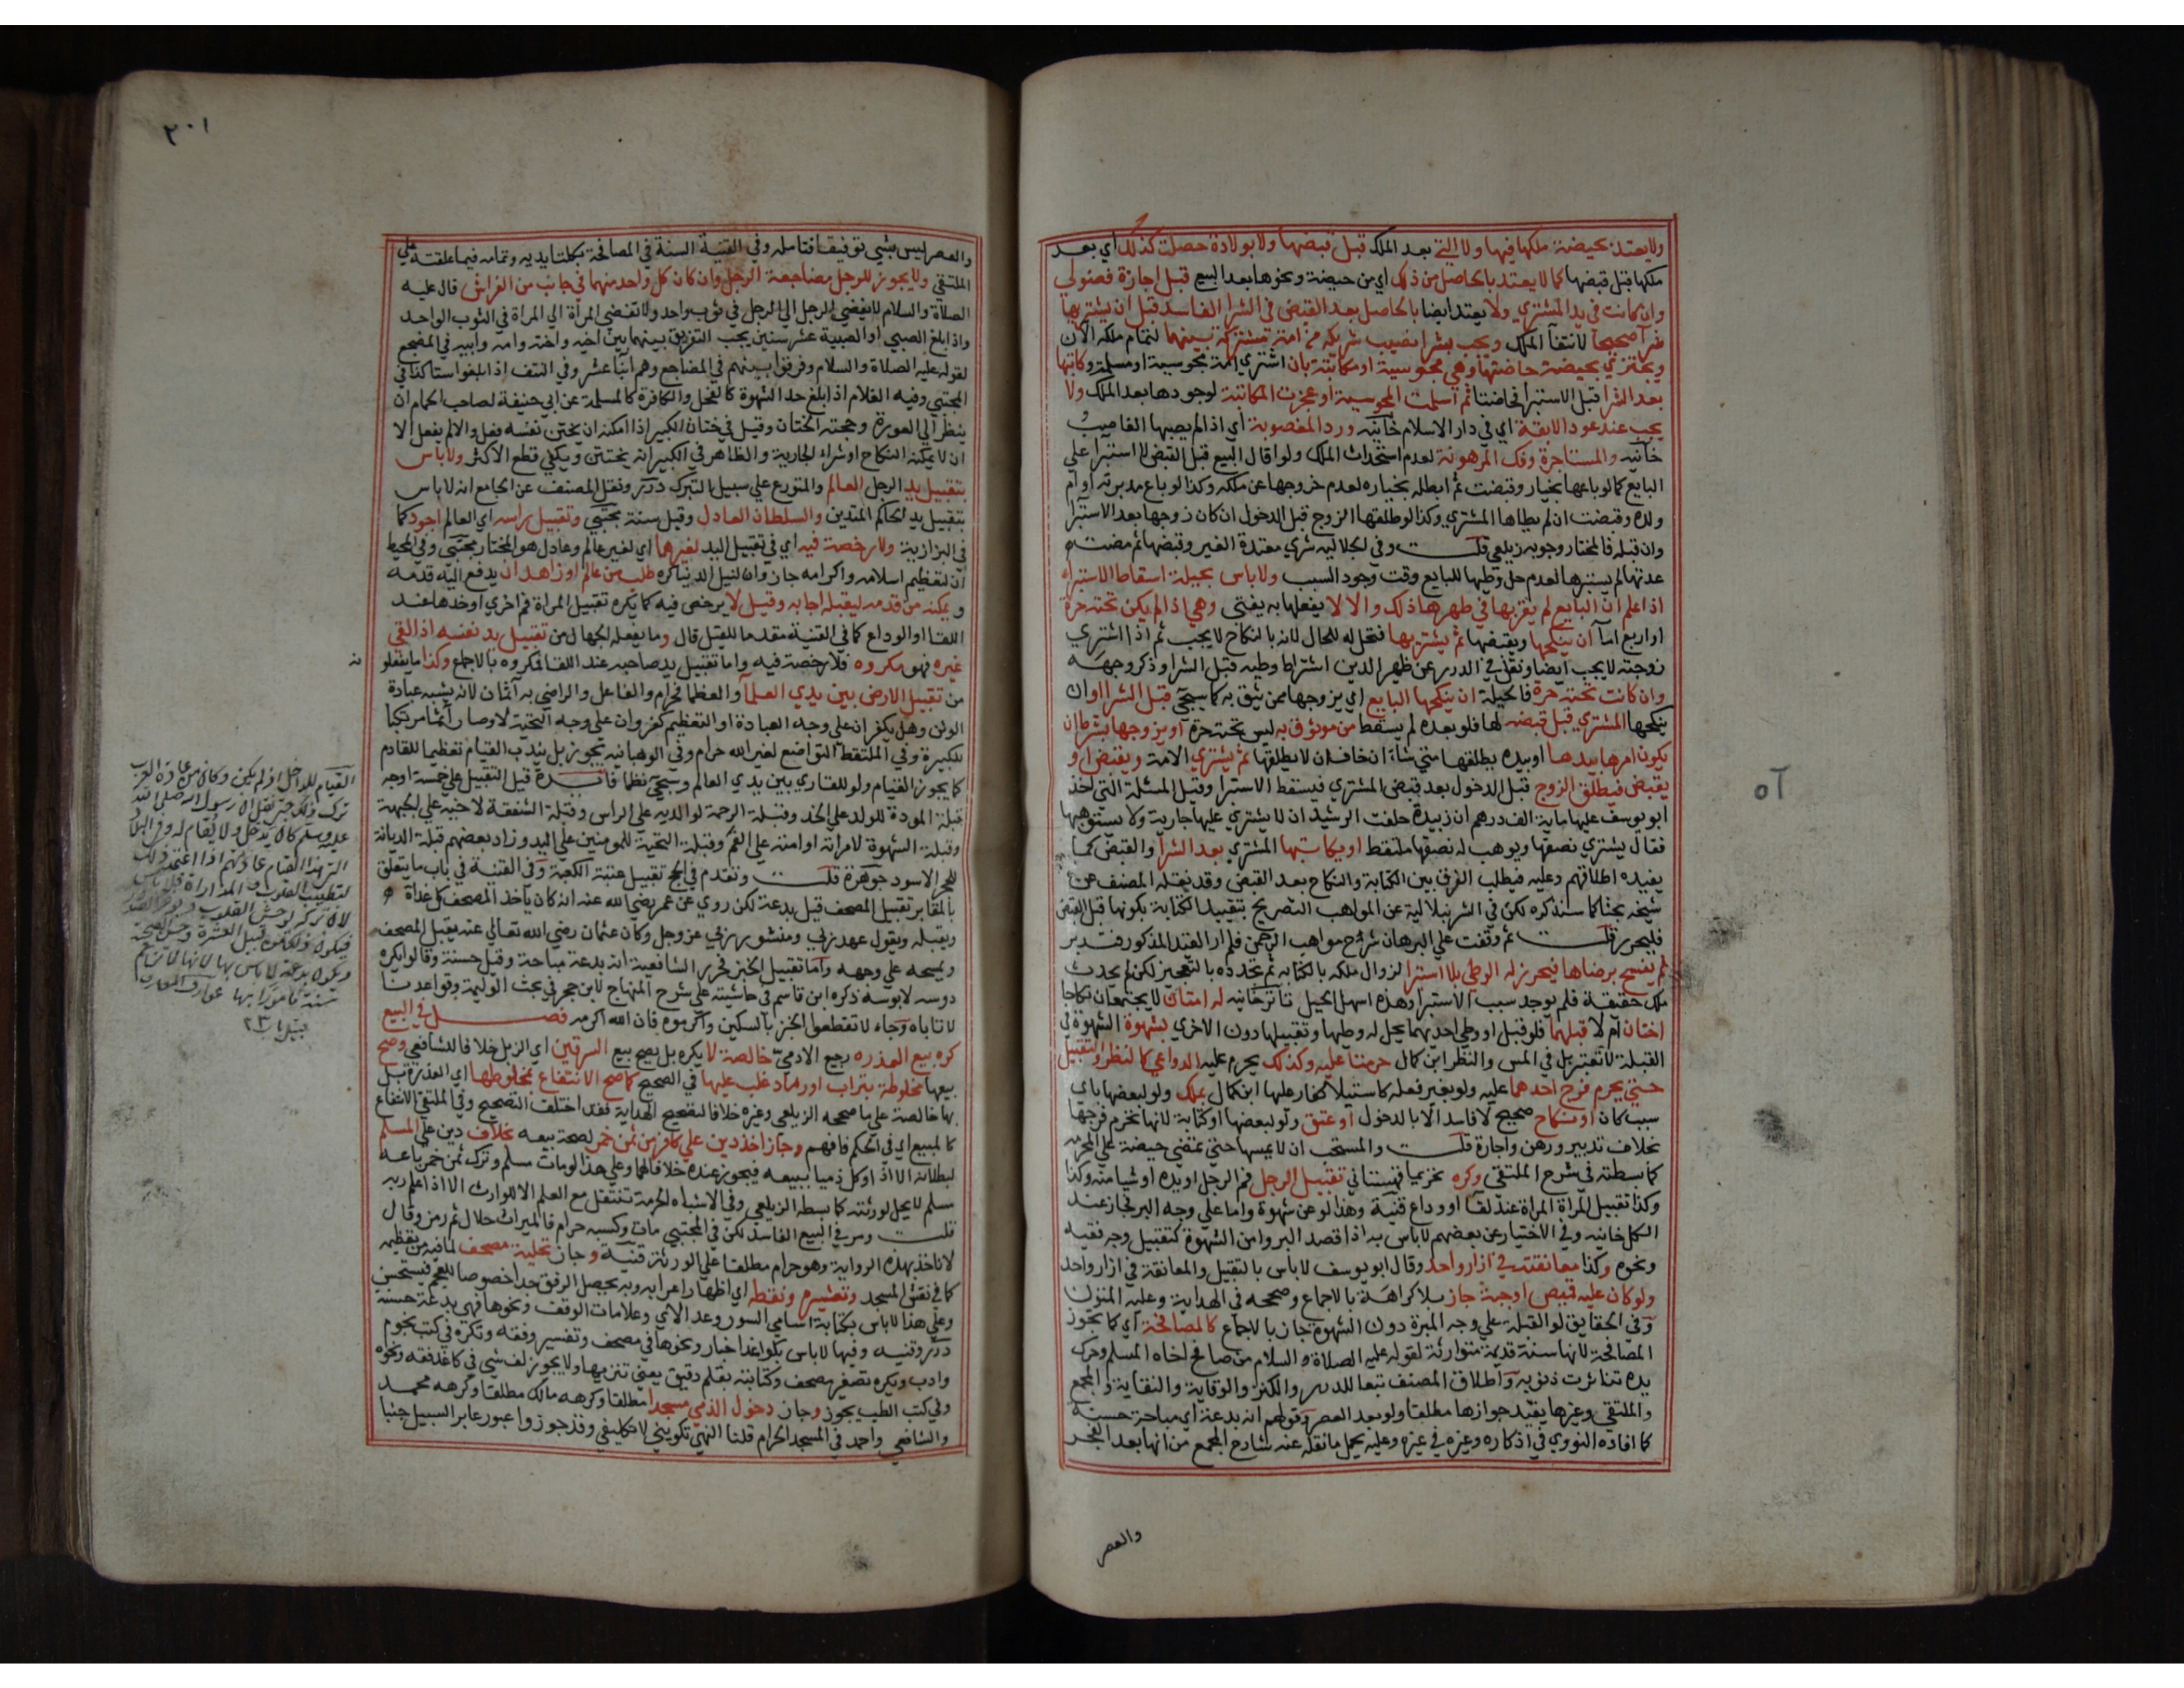 ولا يعتد بحيضة ملكها فيها ولا التي بعد الملك قبل قبضها ولا بولادة حصلت كذلك اي بعد
ملكها قبل قبضها كما لا يعتد بالحاصل من ذلك اي من حيضة ونحوها بعد البيع قبل اجازة فضولي
وان كانت في يد المشتري ولا يعتد ايضا بالحاصل بعد القبض في الشرا الفاسد قبل ان يشتريها
شرا صحيحا لانتفا الملك ويجب بشرا نصيب شريكه من امة مشتركة بينهما لتمام ملكه الآن
ويجتزي بحيضة حاضتها وهي مجوسية او مكاتبة بان اشتري امة مجوسية او مسلمة وكاتبها
بعد الشرا قبل الاستبرا فحاضتا ثم اسلمت المجوسية او عجزت المكاتبة لوجودها بعد الملك ولا
يجب عند عود الابقة اي في دار الاسلام خانيه ورد المغصوبة اي اذا لم يصبها الغاصب
خانيه والمستاجرة وفك المرهونة لعدم استحداث الملك ولو اقال البيع قبل القبض لا استبرا علي
البايع كما لو باعها بخيار وقبضت ثم ابطله بخياره لعدم خروجها عن ملكه وكذا لو باع مدبرته او ام
ولده وقبضت ان لم يطاها المشتري وكذا لو طلقها الزوج قبل الدخول ان كان زوجها بعد الاستبرا
وان قبله فالمختار وجوبه زيلعي قلت وفي الجلاليه شري معتدة الغير وقبضها ثم مضت
عدتها لم يستبرها لعدم حل وطيها للبايع وقت وجود السبب ولا باس بحيلة اسقاط الاستبراء
اذا علم ان البايع لم يقربها في طهرها ذلك والا لا يفعلها به يفتي وهي اذا لم يكن تحته حرة
او اربع امآ ان ينكحها ويقبضها ثم يشتريها فتحل له للحال لانه بالنكاح لا يجب ثم اذا اشتري
زوجته لا يجب ايضا ونقل في الدرر عن ظهير الدين اشتراط وطيه قبل الشرا وذكر وجهه
وان كانت تحته حرة فالحيلة ان ينكحها البايع اي يزوجها ممن يثق به كما سيجي قبل الشرا او ان
ينكحها المشتري قبل قبضه لها فلو بعده لم يسقط من موثوق به ليس تحته حرة او يزوجها بشرط ان
يكون امرها بيدها او بيده يطلقها متي شاء ان خاف ان لا يطلقها ثم يشتري الامة ويقبض او
يقبض فيطلق الزوج قبل الدخول بعد قبض المشتري فيسقط الاستبرا وقيل المسئلة التي اخذ
ابو يوسف عليها ماية الف درهم ان زبيدة حلفت الرشيد ان لا يشتري عليها جارية ولا يستوهبها
فقال يشتري نصفها ويوهب له نصفها ملتقط او يكاتبها المشتري بعد الشرا والقبض كما
يفيده اطلاقهم وعليه فيطلب الفرق بين الكتابة والنكاح بعد القبض وقد نقله المصنف عن
شيخه بحثا كما سنذكره لكن في الشرنبلالية عن المواهب التصريح بتقييد الكتابة بكونها قبل القبض
فليحرر قلت ثم وقفت علي البرهان شرح مواهب الرحمن فلم ار القيد المذكور فتدبر
ثم يفسخ برضاها فيجوز له الوطي بلا استبرا لزوال ملكه بالكتابة ثم تجدده بالتعجيز لكن لم يحدث
ملك حقيقة فلم يوجد سبب الاستبرا وهذه اسهل الحيل تاترخانيه له امتان لا يجتمعان نكاحا
اختان ام لا قبلهما فلو قبل او وطي احديهما يحل له وطيها وتقبيلها دون الاخري بشهوة الشهوة في
القبلة لا تعتبر بل في المس والنظر ابن كمال حرمتا عليه وكذلك يحرم عليه الدواعي كالنظر والتقبيل
حتي يحرم فرج احدهما عليه ولو بغير فعله كاستيلا كفار عليها ابن كمال بملك ولو لبعضها باي
سبب كان او نكاح صحيح لا فاسد الا بالدخول او عتق ولو لبعضها او كتابة لانها تحرم فرجها
بخلاف تدبير ورهن واجارة قلت والمستحب ان لا يمسها حتي تمضي حيضة علي المحرمه
كما بسطته في شرح الملتقي وكره تحريما قهستاني تقبيل الرجل فم الرجل او يده او شيا منه وكذا
وكذا تقبيل المراة المراة عند لقآ او وداع قنية وهذا لو عن شهوة واما علي وجه البر فجاز عند
الكل خانيه وفي الاختيار عن بعضهم لا باس به اذا قصد البر وامن الشهوة كتقبيل وجه فقيه
ونحوه وكذا معانقته في ازار واحد وقال ابو يوسف لا باس بالتقبيل والمعانقة في ازار واحد
ولو كان عليه قميص او جبة جاز بلا كراهة بالاجماع وصححه في الهداية وعليه المتون
وفي الحقايق لو القبلة علي وجه المبرة دون الشهوة جاز بالاجماع كالمصافحة اي كما تجوز
المصافحة لانها سنة قديمة متوارثة لقوله عليه الصلاة والسلام من صافح اخاه المسلم وحرك
يده تناثرت ذنوبه واطلاق المصنف تبعا للدرر والكنز والوقاية والنقاية والمجمع
والملتقي وغيرها يفيد جوازها مطلقا ولو بعد العصر وقولهم انه بدعة اي مباحة حسنة
كما افاده النووي في اذكاره وغيره في غيره وعليه يحمل ما نقله عنه شارح المجمع من انها بعد الفجر
والعصر
٢٠١
والعصر ليس بشي توفيقا فتامله وفي القنية السنة في المصافحة بكلتا يديه وتمامه فيما علقته علي
الملتقي ولا يجوز للرجل مضاجعة الرجل وان كان كل واحد منهما في جانب من الفراش قال عليه
الصلاة والسلام لا يفضي الرجل الي الرجل في ثوب واحد ولا تفضي المراة الي المراة في الثوب الواحد
واذا بلغ الصبي او الصبية عشر سنين يجب التفريق بينهما بين اخيه واخته وامه وابيه في المضجع
لقوله عليه الصلاة والسلام وفرقوا بينهم في المضاجع وهم ابنآ عشر وفي النتف اذا بلغوا ستا كذا في
المجتبي وفيه الغلام اذا بلغ حد الشهوة كالفحل والكافرة كالمسلمة عن ابي حنيفة لصاحب الحمام ان
ينظر الي العورة وحجته الختان وقيل في ختان الكبير اذا امكنه ان يختن نفسه فعل والا لم يفعل الا
ان لا يمكنه النكاح او شراء الجارية والظاهر في الكبير انه يختتن ويكفي قطع الاكثر ولا باس
بتقبيل يد الرجل العالم والمتورع علي سبيل التبرك درر ونقل المصنف عن الجامع انه لا باس
بتقبيل يد الحاكم المتدين والسلطان العادل وقيل سنة مجتبي وتقبيل راسه اي العالم اجود كما
في البزازية ولا رخصة فيه اي في تقبيل اليد لغيرهما اي لغير عالم وعادل هو المختار مجتبي وفي المحيط
ان لتعظيم اسلامه واكرامه جاز وان لنيل الدنيا كره طلب من عالم او زاهد ان يدفع اليه قدمه
ويمكنه من قدمه ليقبله اجابه وقيل لا يرخص فيه كما يكره تقبيل المراة فم اخري او خدها عند
اللقا او الوداع كما في القنية مقدما للقيل قال وما يفعله الجهال من تقبيل يد نفسه اذا لقي
غيره فهو مكروه فلا رخصة فيه واما تقبيل يد صاحبه عند اللقا فمكروه بالاجماع وكذا ما يفعلو
نه
من تقبيل الارض بين يدي العلمآ والعظما فحرام والفاعل والراضي به آثمان لانه يشبه عبادة
الوثن وهل يكفر ان علي وجه العبادة او التعظيم كفر وان علي وجه التحية لا وصار آثما مرتكبا
للكبيرة وفي الملتقط التواضع لغير الله حرام وفي الوهبانيه يجوز بل يندب القيام تعظيما للقادم
كما يجوز القيام ولو للقاري بين يدي العالم وسيجي نظما فائدة قيل التقبيل علي خمسة اوجه
قبلة المودة للولد علي الخد وقبلة الرحمة لوالديه علي الراس وقبلة الشفقة لاخيه علي الجبهة
وقبلة الشهوة لامراته او امته علي الفم وقبلة التحية للمومنين علي اليد وزاد بعضهم قبلة الديانة
للحجر الاسود جوهرة قلت وتقدم في الحج تقبيل عتبة الكعبة وفي القنية في باب ما يتعلق
بالمقابر تقبيل المصحف قيل بدعة لكن روي عن عمر رضي الله عنه انه كان ياخذ المصحف كل غداة
ويقبله ويقول عهد ربي ومنشور ربي عز وجل وكان عثمان رضي الله تعالي عنه يقبل المصحف
ويمسحه علي وجهه واما تقبيل الخبز فحرر الشافعية انه بدعة مباحة وقيل حسنة وقالوا يكره
دوسه لا بوسه ذكره ابن قاسم في حاشيته علي شرح المنهاج لابن حجر في بحث الوليمة وقواعدنا
لا تاباه وجاء لا تقطعوا الخبز بالسكين واكرموه فان الله اكرمه فصل في البيع
كره بيع العذره رجيع الادمي خالصة لا يكره بل يصح بيع السرقين اي الزبل خلافا للشافعي وصح
بيعها مخلوطة بتراب او رماد غلب عليها في الصحيح كما صح الانتفاع بمخلوطها اي العذرة بل
بها خالصة علي ما صححه الزيلعي وغيره خلافا لتصحيح الهداية فقد اختلف التصحيح وفي الملتقي الانتفاع
كالبيع اي في الحكم فافهم وجاز اخذ دين علي كافر من ثمن خمر لصحة بيعه بخلاف دين علي المسلم
لبطلانه الا اذا وكل ذميا ببيعه فيجوز عنده خلافا لهما وعلي هذا لو مات مسلم وترك ثمن خمر باعه
مسلم لا يحل لورثته كما بسطه الزيلعي وفي الاشباه الحرمة تنتقل مع العلم الا للوارث الا اذا علم ربه
قلت ومر في البيع الفاسد لكن في المجتبي مات وكسبه حرام فالميراث حلال ثم رمز وقال
لا ناخذ بهذه الرواية وهو حرام مطلقا علي الورثة قنية وجاز تحلية مصحف لما فيه من تعظيمه
كما في نقش المسجد وتعشيره ونقطه اي اظهار اعرابه وبه يحصل الرفق جدا خصوصا للعجم فيستحسن
وعلي هذا لا باس بكتابة اسامي السور وعد الاي وعلامات الوقف ونحوها فهي بدعة حسنة
درر وقنيه وفيها لا باس بكواغد اخبار ونحوها في مصحف وتفسير وفقه وتكره في كتب نجوم
وادب ويكره تصغير مصحف وكتابته بقلم دقيق يعني تنزيها ولا يجوز لف شي في كاغد فقه ونحوه
وفي كتب الطب يجوز وجاز دخول الذمي مسجدا مطلقا وكرهه مالك مطلقا وكرهه محمد
والشافعي واحمد في المسجد الحرام قلنا النهي تكويني لا تكليفي وقد جوزوا عبور عابر السبيل جنبا
القيام للداخل اذ لم يكن وكان من عادة العرب
ترك ذلك حتى نقل ان رسول الله صلى الله
عليه وسلم كان يدخل ولا يقام له وفي البلاد
التي هذا القيام عادتهم اذا اعتمد ذلك
لتطييب القلوب والمداراة فلا باس
لان تركه يوحش القلوب ويوغر الصدر
فيكون ذلك من قبيل العشرة وحسن الصحبة
ويكون بدعة لا باس بها لانها لا تزاحم
سنة مأمورا بها عوارف المعارف